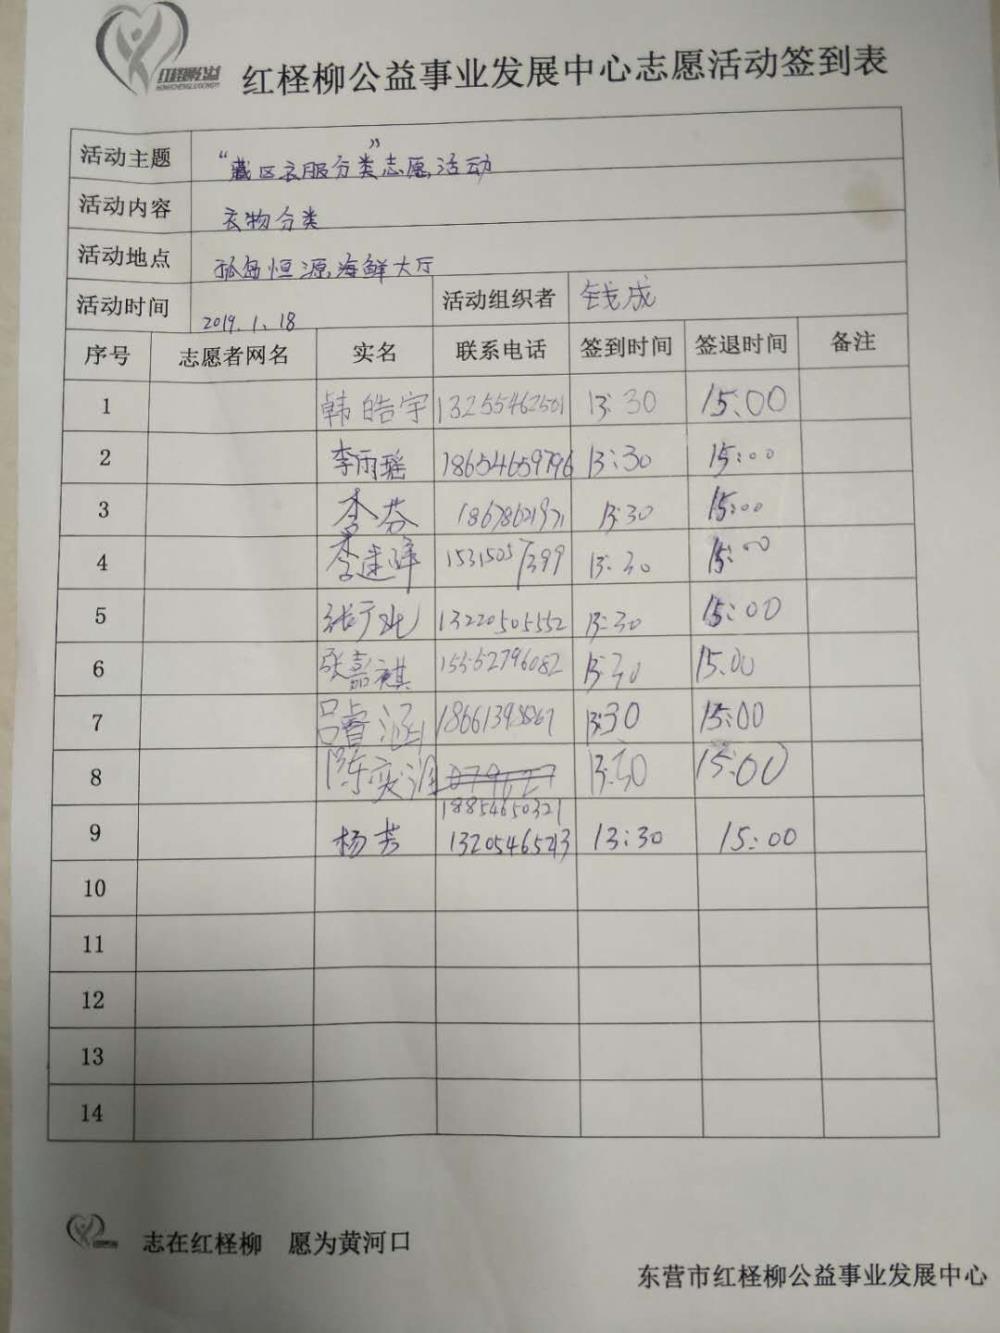 红柽柳公益
红柽柳公益事业发展中心志愿活动签到表
活动主题 “藏区衣服分类”志愿活动
活动内容 衣物分类
活动地点 孤岛恒源海鲜大厅
活动时间 2019.1.18 活动组织者 钱成
序号 志愿者网名 实名 联系电话 签到时间 签退时间 备注
1 韩皓宇 13255462501 13:30 15:00
2 李雨瑶 18654659796 13:30 15:00
3 李芬 18678621971 13:30 15:00
4 李建峰 15315057399 13:30 15:00
5 13220505552 13:30 15:00
6 张嘉祺 15552796082 13:30 15:00
7 吕睿涵 13:30 15:00
8 陈奕涵 13:30 15:00
18854650321
9 杨芳 13205465213 13:30 15:00
10
11
12
13
14
志在红柽柳 愿为黄河口
东营市红柽柳公益事业发展中心